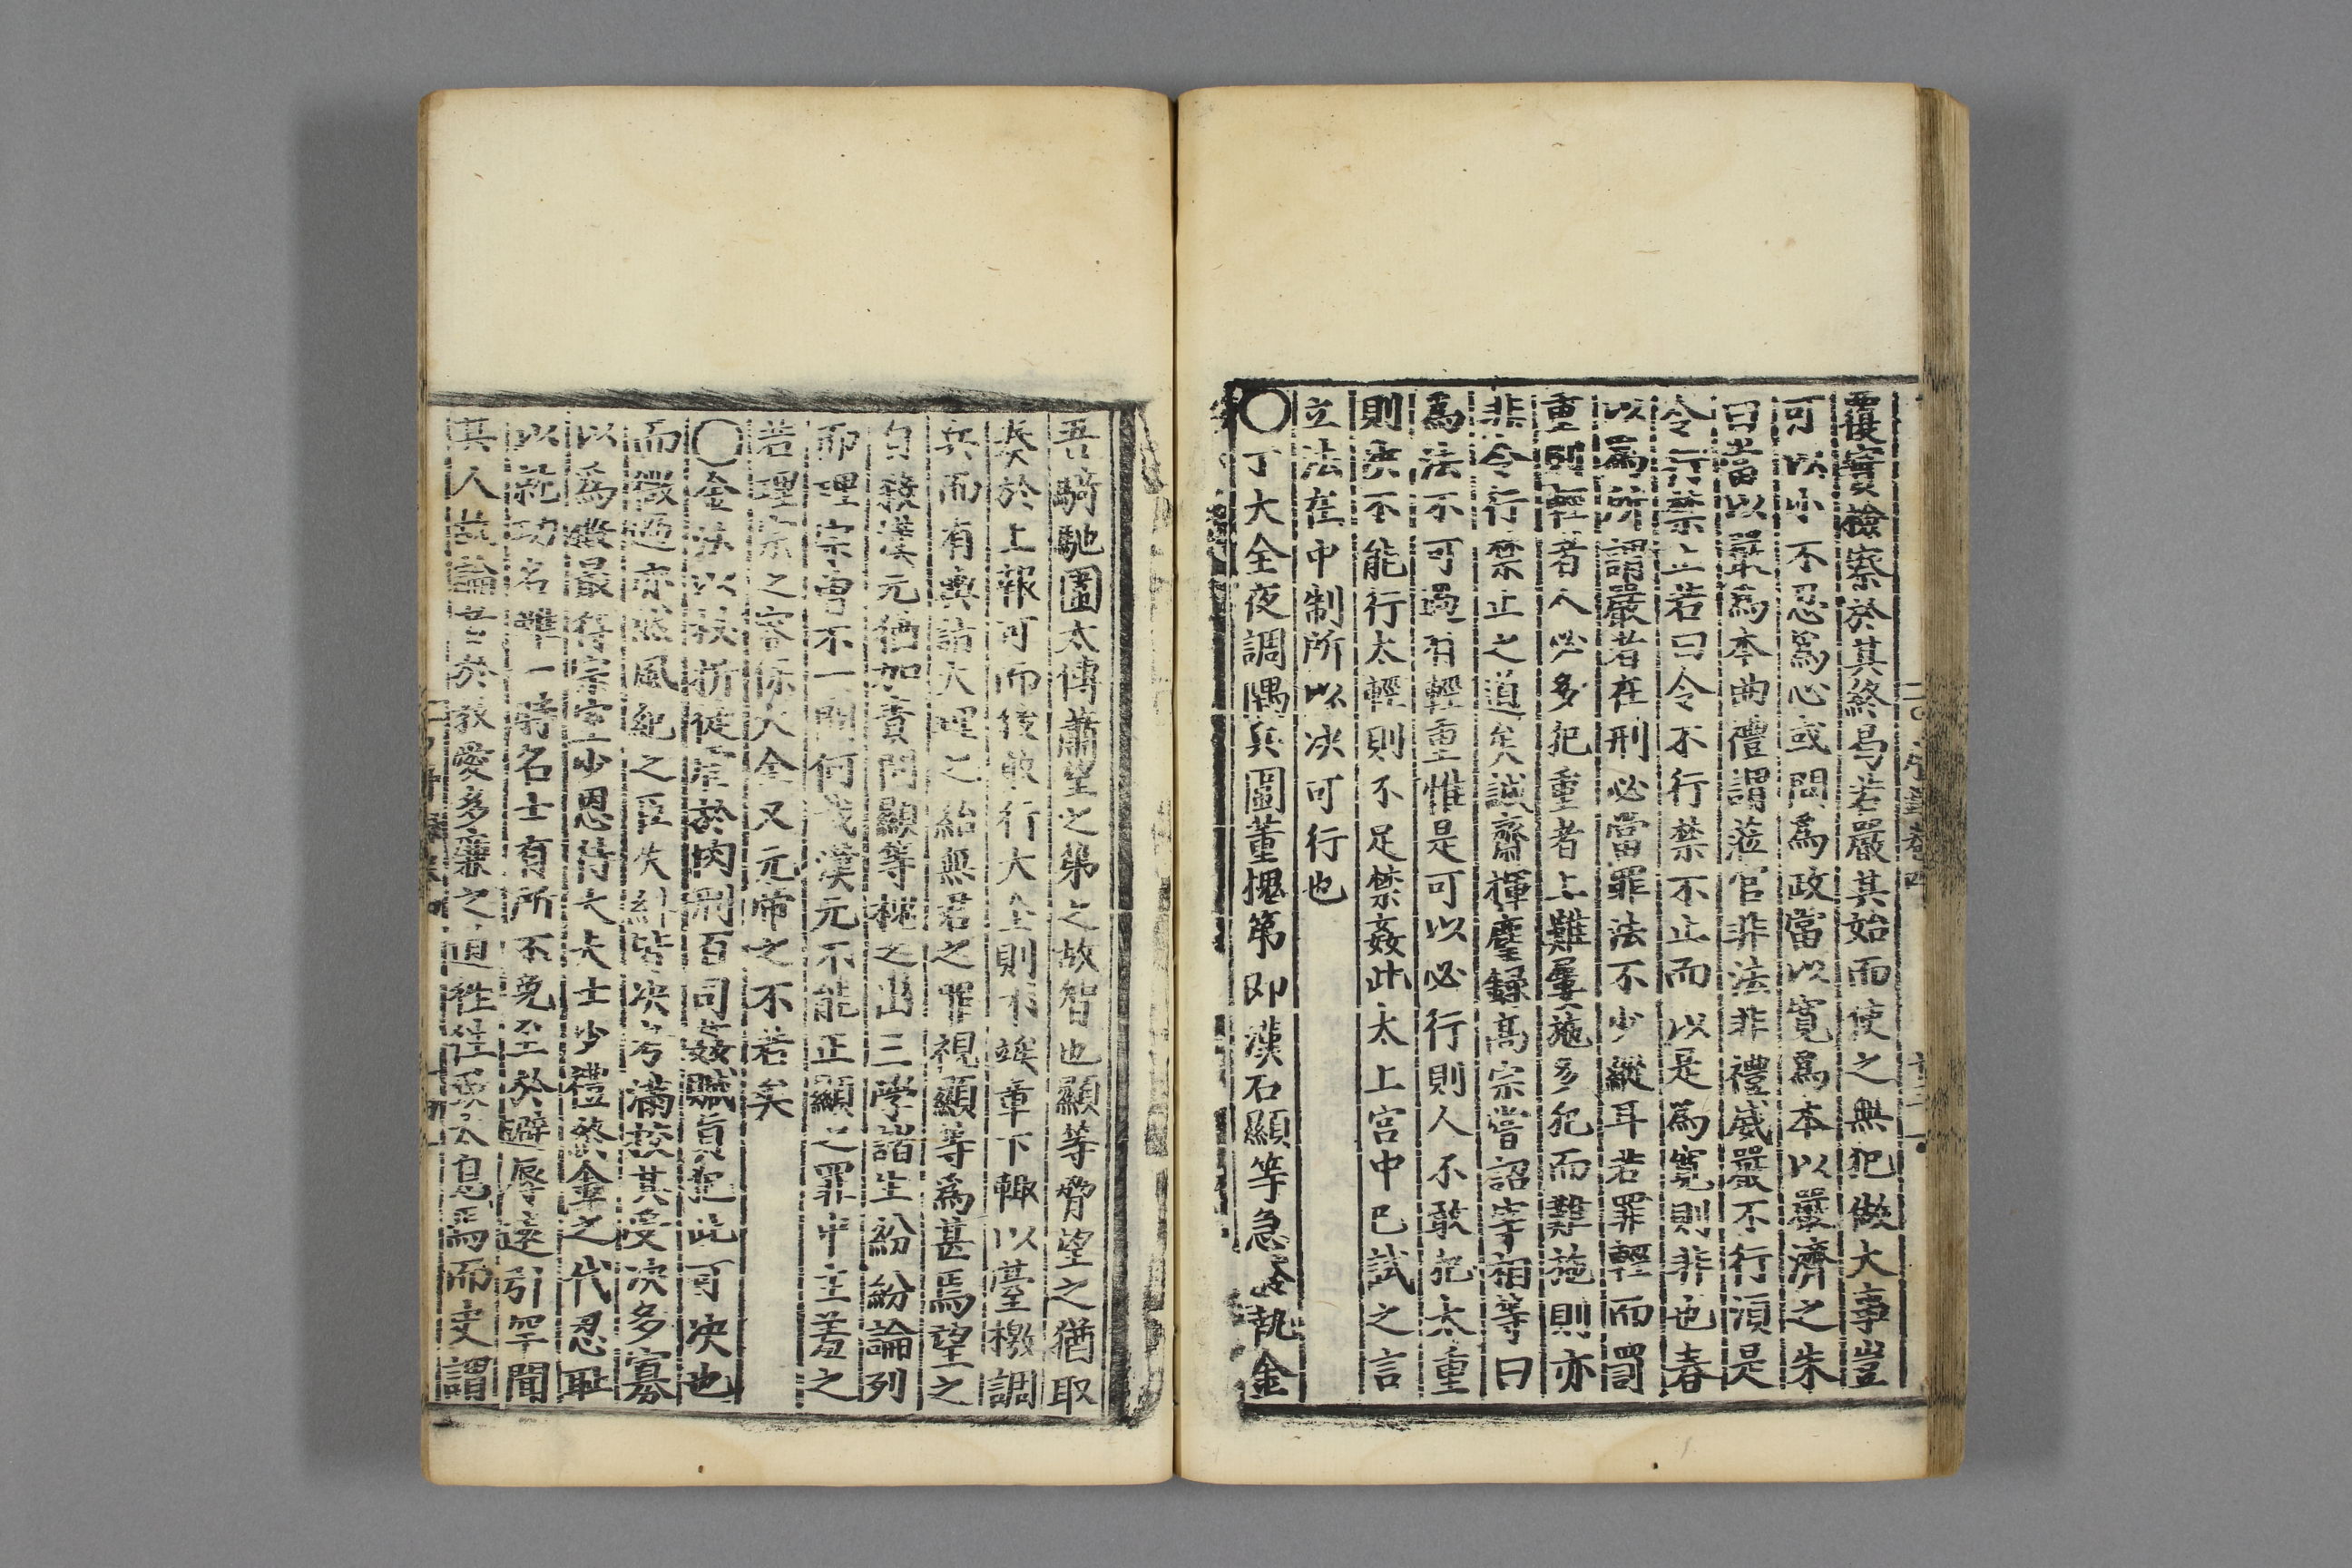 覆實檢察於其終焉若嚴其始而使之無犯做大事豈
可以小不忍爲心或問爲政當以寬爲本以嚴濟之朱
曰當以嚴爲本曲禮謂蒞官非法非禮威嚴不行須是
令行禁止若曰令不行禁不止而以是爲寬則非也春
以爲所謂嚴者在刑必當罪法不少縱耳若罪輕而罰
重則輕者人必多犯重者上難屢施多犯而難施則亦
非令行禁止之道矣誠齋揮麈録高宗嘗詔宰相等曰
爲法不可過有輕重惟是可以必行則人不敢犯太重
則決不能行太輕則不足禁姦此太上宫中已試之言
立法在中制所以决可行也
〇丁大全夜調隅兵圖董槐第即漢石顯等急發執金
吾騎馳圍太傅蕭望之第之故智也顯等脅望之猶取
奏於上報可而後敢行大全則不竢章下輙以臺檄調
兵而有輿詣大理之紿無君之罪視顯等爲甚焉望之
自殺漢元猶加責問顯等槐之出三學諸生紛紛論列
而理宗曽不一問何哉漢元不能正顯之罪中主羞之
若理宗之容保大全又元帝之不若矣
〇金法以杖折徒崔於肉刑百司姦贜眞犯此可决也
而微過亦然風紀之臣失糾皆决考滿校其受决多寡
以爲殿最待宗室少恩待大夫士少禮終金之代忍恥
以就功名雖一時名士有所不免至於避辱逺引罕聞
其人故論者於教愛多亷之道徃徃致太息焉而史謂